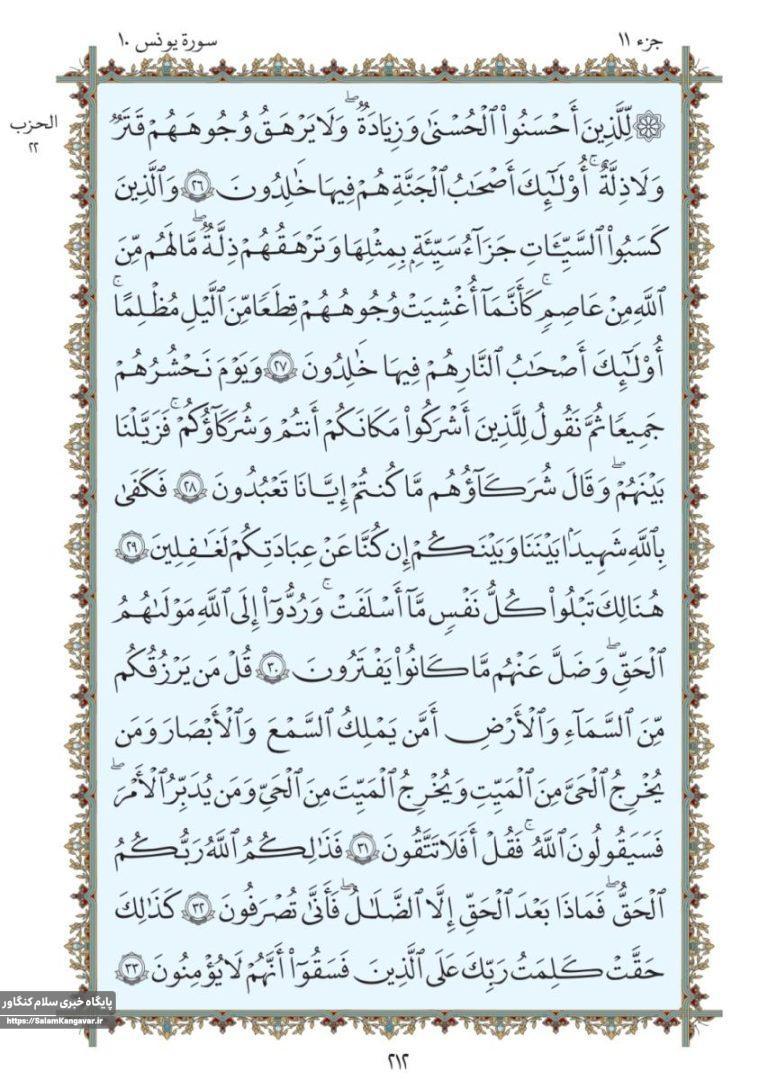 جزء ۱۱
سورة يونس ۱۰
الحزب
۲۲
لِّلَّذِينَ أَحْسَنُوا۟ ٱلْحُسْنَىٰ وَزِيَادَةٌۖ وَلَا يَرْهَقُ وُجُوهَهُمْ قَتَرٌ
وَلَا ذِلَّةٌۚ أُو۟لَـٰٓئِكَ أَصْحَابُ ٱلْجَنَّةِ هُمْ فِيهَا خَٰلِدُونَ ۲۶ وَٱلَّذِينَ
كَسَبُوا۟ ٱلسَّيِّـَٔاتِ جَزَآءُ سَيِّئَةٍۭ بِمِثْلِهَا وَتَرْهَقُهُمْ ذِلَّةٌۖ مَّا لَهُم مِّنَ
ٱللَّهِ مِنْ عَاصِمٍۖ كَأَنَّمَآ أُغْشِيَتْ وُجُوهُهُمْ قِطَعًا مِّنَ ٱلَّيْلِ مُظْلِمًاۚ
أُو۟لَـٰٓئِكَ أَصْحَابُ ٱلنَّارِ هُمْ فِيهَا خَٰلِدُونَ ۲۷ وَيَوْمَ نَحْشُرُهُمْ
جَمِيعًا ثُمَّ نَقُولُ لِلَّذِينَ أَشْرَكُوا۟ مَكَانَكُمْ أَنتُمْ وَشُرَكَآؤُكُمْۚ فَزَيَّلْنَا
بَيْنَهُمْۖ وَقَالَ شُرَكَآؤُهُم مَّا كُنتُمْ إِيَّانَا تَعْبُدُونَ ۲۸ فَكَفَىٰ
بِٱللَّهِ شَهِيدًۢا بَيْنَنَا وَبَيْنَكُمْ إِن كُنَّا عَنْ عِبَادَتِكُمْ لَغَٰفِلِينَ ۲۹
هُنَالِكَ تَبْلُوا۟ كُلُّ نَفْسٍ مَّآ أَسْلَفَتْۚ وَرُدُّوٓا۟ إِلَى ٱللَّهِ مَوْلَىٰهُمُ
ٱلْحَقِّۖ وَضَلَّ عَنْهُم مَّا كَانُوا۟ يَفْتَرُونَ ۳۰ قُلْ مَن يَرْزُقُكُم
مِّنَ ٱلسَّمَآءِ وَٱلْأَرْضِ أَمَّن يَمْلِكُ ٱلسَّمْعَ وَٱلْأَبْصَارَ وَمَن
يُخْرِجُ ٱلْحَيَّ مِنَ ٱلْمَيِّتِ وَيُخْرِجُ ٱلْمَيِّتَ مِنَ ٱلْحَيِّ وَمَن يُدَبِّرُ ٱلْأَمْرَۖ
فَسَيَقُولُونَ ٱللَّهُۚ فَقُلْ أَفَلَا تَتَّقُونَ ۳۱ فَذَٰلِكُمُ ٱللَّهُ رَبُّكُمُ
ٱلْحَقُّۖ فَمَاذَا بَعْدَ ٱلْحَقِّ إِلَّا ٱلضَّلَٰلُۖ فَأَنَّىٰ تُصْرَفُونَ ۳۲ كَذَٰلِكَ
حَقَّتْ كَلِمَتُ رَبِّكَ عَلَى ٱلَّذِينَ فَسَقُوٓا۟ أَنَّهُمْ لَا يُؤْمِنُونَ ۳۳
پایگاه خبری سلام کنگاور
https://SalamKangavar.ir
۲۱۲